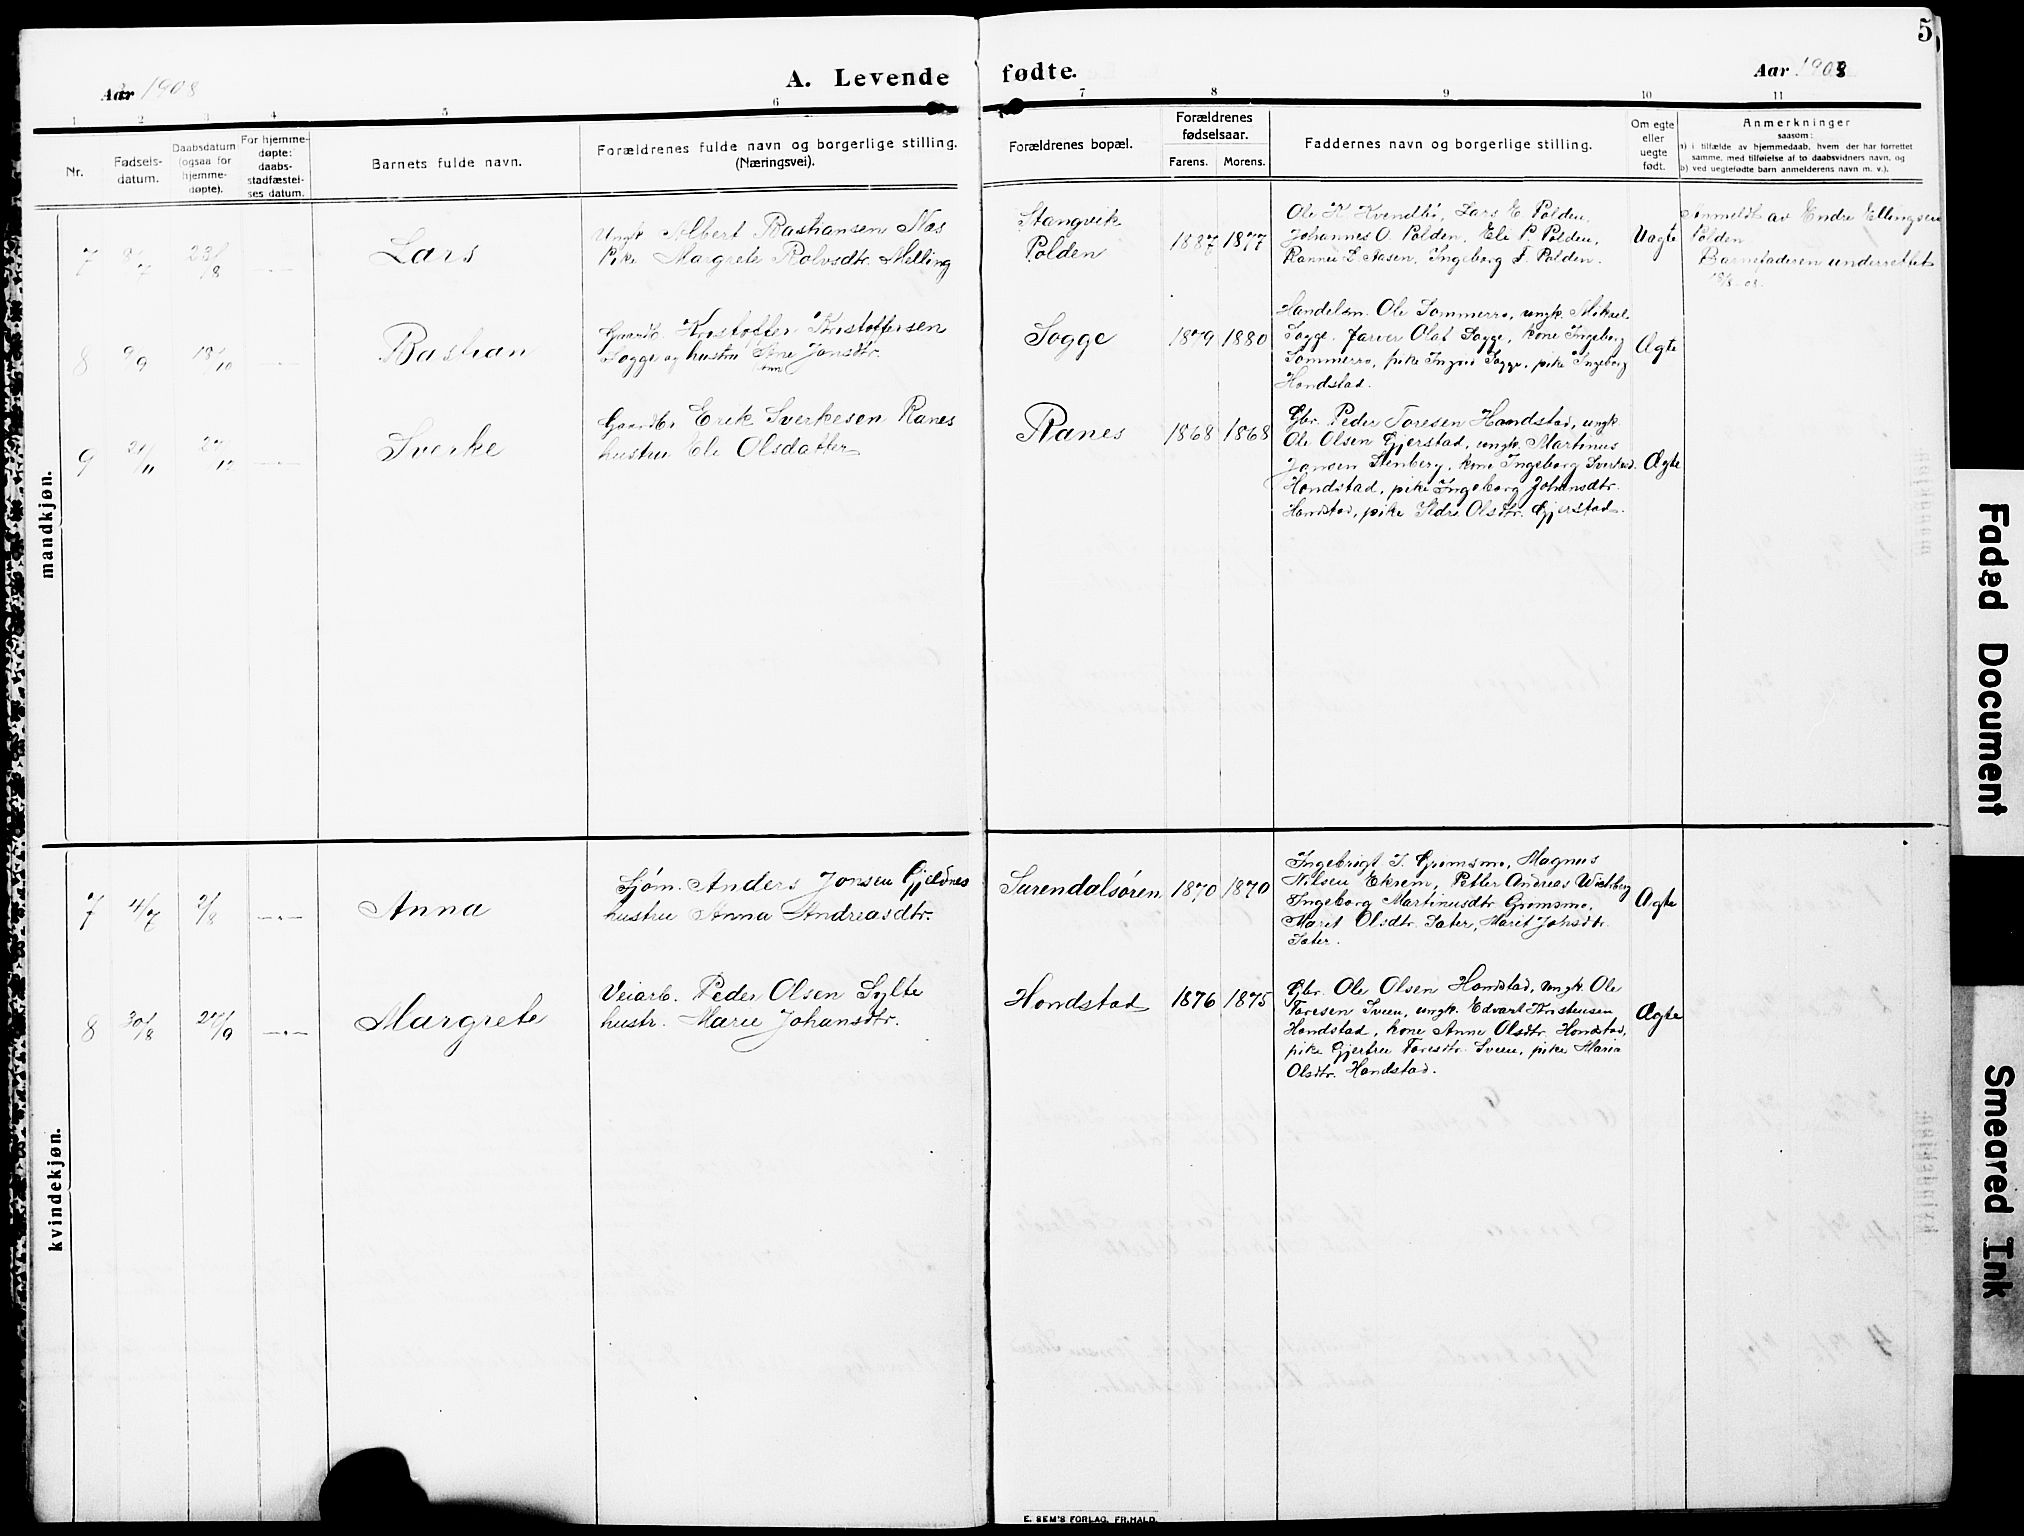 5
Aar 1908
A. Levende fødte.
Aar 1908
1 2 3 4 5 6 7 8 9 10 11
Nr.
Fødsels-
datum.
Daabsdatum
(ogsaa for
hjemme-
døpte).
For hjemme-
døpte:
daabs-
stadfæstel-
ses datum.
Barnets fulde navn.
Forældrenes fulde navn og borgerlige stilling.
(Næringsvei).
Forældrenes bopæl.
Forældrenes
fødselsaar.
Farens. Morens.
Faddernes navn og borgerlige stilling.
Om egte
eller
uegte
født.
Anmerkninger
saasom:
a) i tilfælde av hjemmedaab, hvem der har forrettet
samme, med tilføielse af to daabsvidners navn, og
b) ved uegtefødte barn anmelderens navn m. v.).
mandkjøn.
7 8/7 23/8
Lars
Ungk. Albert Bastiansen Næs
Pike Margrete Rolvsdtr. Melling
Stangvik
Polden
1887 1877
Ole K. Kvendbø, Lars E. Polden,
Johannes O. Polden, Eli P. Polden,
Rannei L. Aasen, Ingeborg F. Polden.
Uægte
Anmeldt av Endre Ellingsen
Polden
Barnefaderen underrettet
18/8-08.
8 9/9 18/10
Bastian
Gaardb. Kristoffer Kristoffersen
Sogge og hustru Ane Jonsdtr.
Sogge
1879 1880
Handelsm. Ole Sommerro, ungk. Mikael
Sogge, farver Olaf Sogge, kone Ingeborg
Sommerro, pike Ingrid Sogge, pike Ingeborg
Hondstad.
Ægte
9 21/11 27/12
Sverke
Gaardbr. Erik Sverkesen Ranes
hustru Eli Olsdatter
Ranes
1868 1868
Gbr. Peder Toresen Hondstad, ungk.
Ole Olsen Gjerstad, ungk. Martinus
Jansen Stenberg, kone Ingeborg Sverkesd.
Hondstad, pike Ingeborg Johansdtr.
Hondstad, pike Ildri Olsdtr. Gjerstad.
Ægte
kvindekjøn.
7 4/7 2/8
Anna
Sjøm. Anders Jonsen Gjeldnes
hustru Anna Andreasdtr.
Surendalsøren
1870 1870
Ingebrigt J. Grømsmo, Magnus
Nilsen Ekrem, Petter Andreas Wichberg
Ingeborg Martinusdtr Grømsmo,
Marit Olsdtr. Sæter, Marit Johsdtr.
Sæter.
Ægte
8 30/8 27/9
Margrete
Veiarb. Peder Olsen Sylte
hustr. Marie Johansdtr.
Hondstad
1876 1875
Gbr. Ole Olsen Hondstad, ungk. Ole
Toresen Sveen, ungk. Edvart Kristensen
Hondstad, kone Anne Olsdtr. Hondstad,
pike Gjertru Toresdtr. Sveen, pike Maria
Olsdtr. Hondstad.
Ægte
E. SEM'S FORLAG, FR.HALD.
Faded Document
Smeared Ink